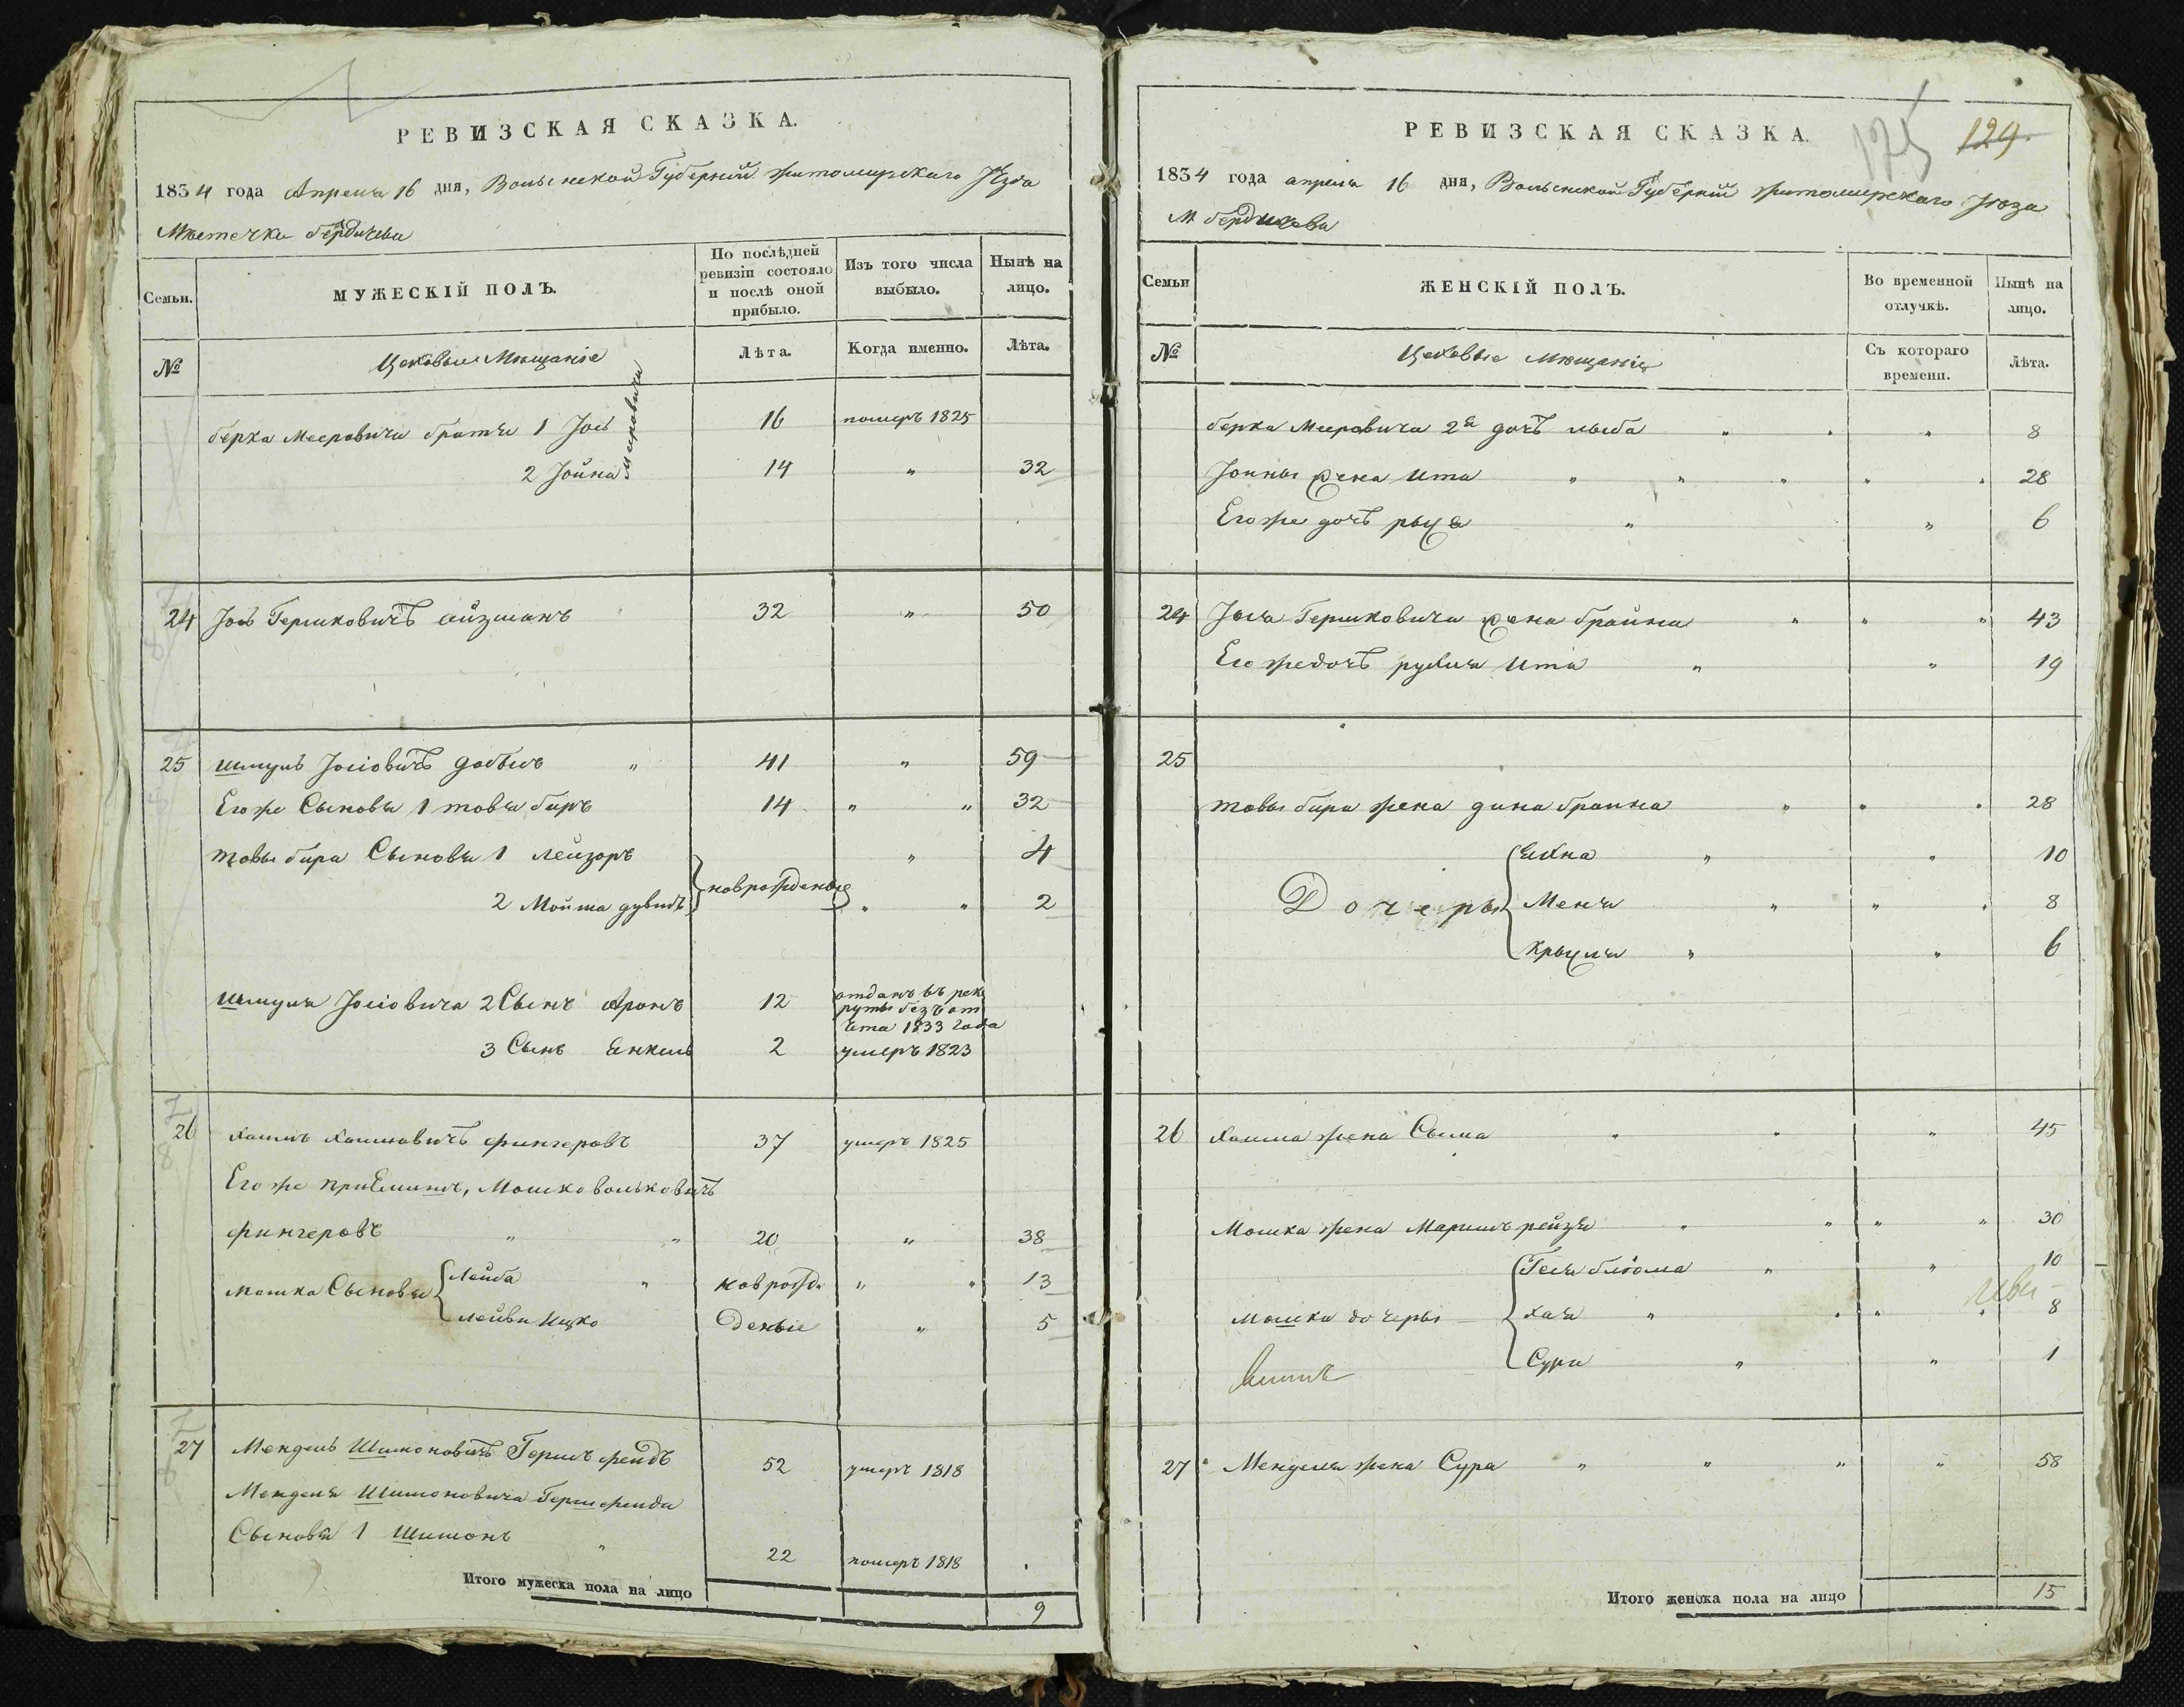 РЕВИЗСКАЯ СКАЗКА.
1834 года Апреля 16 дня, Волынской Губернии Житомирского Уезда
Местечка бердичева
Семьи.
МУЖЕСКІЙ ПОЛЪ.
По послѣдней ревизіи состояло и послѣ оной прибыло.
Изъ того числа выбыло.
Нынѣ на лицо.
№
Цеховые Мещаніе
Лѣта.
Когда именно.
Лѣта.
берка Мееровича братья 1 Іось Мееровичи 16 померъ 1825
2 Іойна 14 " 32
24 Іось Гершковичъ айзманъ 32 " 50
25 Шмуль Іосіовичъ " 41 " 59
Его же Сыновья 1 товья беръ 14 " " 32
товы бера Сыновья 1 лейзоръ " 4
2 Мойша дувидъ } новрожденые " " 2
Шмуля Іосіовича 2 Сынъ Аронъ 12 отданъ въ рекруты безъ отчета 1833 года
3 Сынъ Янкель 2 умеръ 1823
26 Хаимъ Хаимовичъ фингеровъ 37 умеръ 1825
Его же приемышъ, Мошко вольковичъ
фингеровъ " " 20 " 38
мошка Сыновья { Лейба " новрожд. " " 13
лейви Ицко деные " 5
27 Мендель Шимоновичъ Гершфендъ 52 умеръ 1818
Менделя Шимоновича Гершфенда
Сыновья 1 Шимонъ " 22 померъ 1818
Итого мужеска пола на лицо 9
175 129
РЕВИЗСКАЯ СКАЗКА.
1834 года апреля 16 дня, Волынской Губерніи Житомирскаго Уезда
М бердичева
Семьи
ЖЕНСКІЙ ПОЛЪ.
Во временной отлучкѣ.
Нынѣ на лицо.
№
Цеховые Мещаніе
Съ котораго времени.
Лѣта.
берка Мееровича 2я дочь " . " 8
Іойны жена Ита " " " " . 28
Его же дочь рыся " " 6
24 Іося Гершковича жена брайна " " " 43
Его же дочь рухля Ита " " 19
25
товы бера жена дина браина " " . 28
Дочеры { Яхна " " 10
Меня " " . 8
Крысля " " 6
26 Хаима жена Сыма " " " 45
Мошка жена Маришъ рейзя " " " " 30
Геля блюма " " 10
Мошки дочеры { хая " . " . 8
Сура " " 1
27 Менделя жена Сура " " " " 58
Итого женска пола на лицо 15